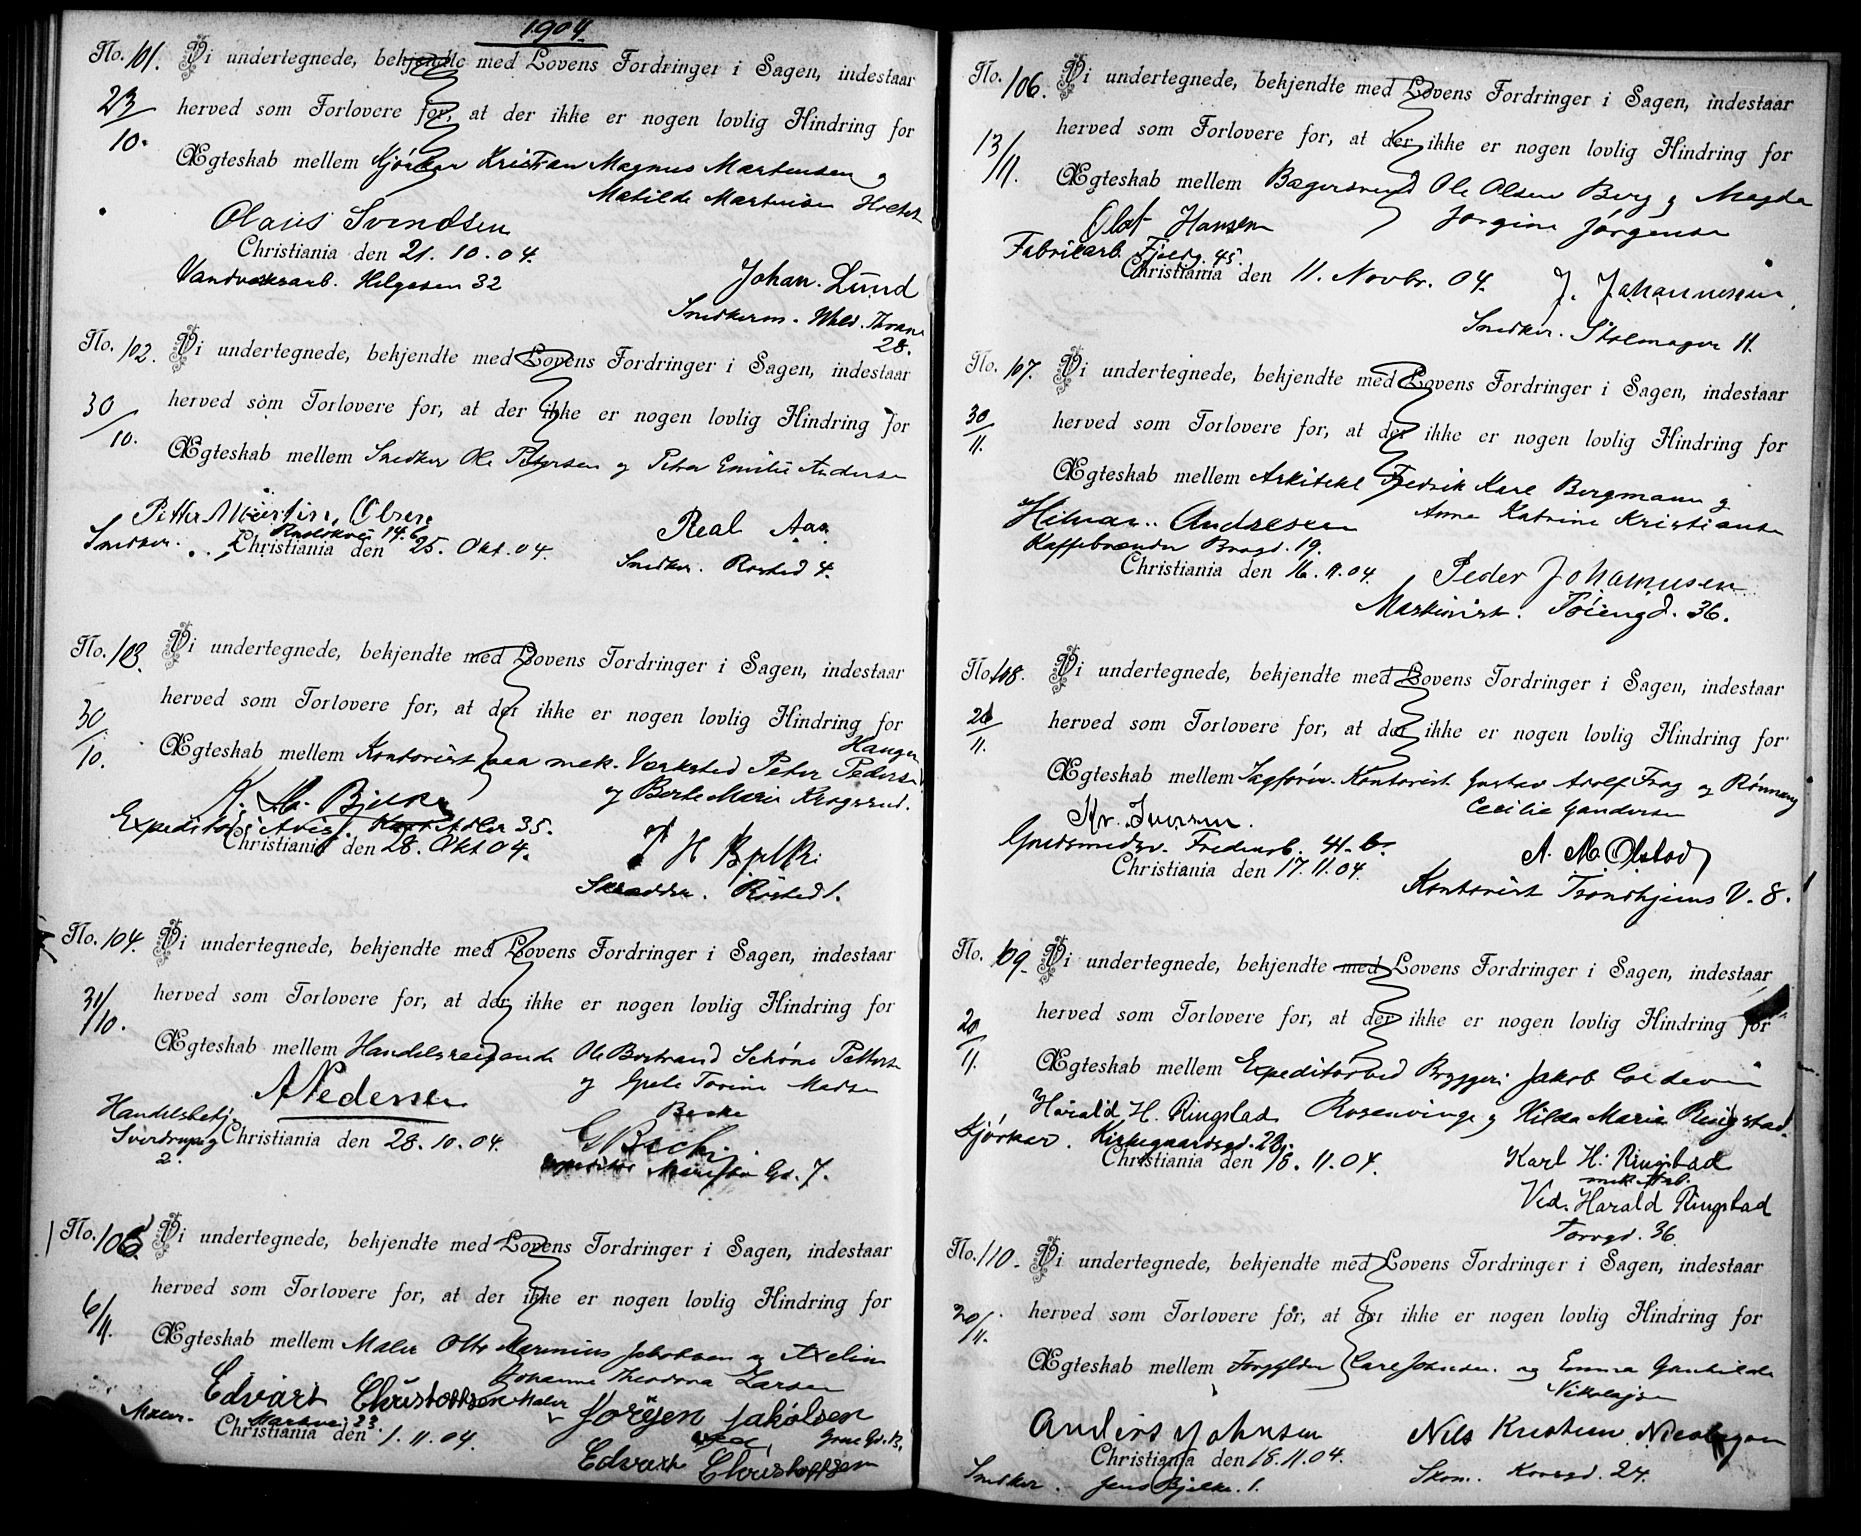 1904.
No. 101. Vi undertegnede, bekjendte med Lovens Fordringer i Sagen, indestaar
23/10. herved som Forlovere for, at der ikke er nogen lovlig Hindring for
Ægteskab mellem Kjørekar Kristian Magnus Martensen og
Matilde Martinsen Holter
Olaus Svendsen
Christiania den 21.10.04.
Vandværksarb. Helgesen 32
Johan. Lund
Snedkerm. Wald. Thrane
28.
No. 102. Vi undertegnede, bekjendte med Lovens Fordringer i Sagen, indestaar
30/10. herved som Forlovere for, at der ikke er nogen lovlig Hindring for
Ægteskab mellem Snedker Ole Petersen og Petra Emilie Andersen
Petter Martin Olsen
Real Aas
Snedker. 14.b
Christiania den 25. Okt. 04.
Snedker. Rosted 4.
No. 103. Vi undertegnede, bekjendte med Lovens Fordringer i Sagen, indestaar
30/10. herved som Forlovere for, at der ikke er nogen lovlig Hindring for
Haugen
Ægteskab mellem Kontorist paa mek. Værksted Peter Pedersen
og Berte Marie Krogsrud.
K. M. Bjelke
Expeditør i Avis. Kort Adler 35.
Christiania den 28. Okt 04.
H Bjelke
Skrædder. Rosted 1.
No. 104. Vi undertegnede, bekjendte med Lovens Fordringer i Sagen, indestaar
31/10. herved som Forlovere for, at der ikke er nogen lovlig Hindring for
Ægteskab mellem Handelsreisende Ole Bertrand Schøne Pettersen
og Grete Torine Madsen
A Pedersen
Becke
Handelsbetj.
Sverdrupsg
2.
Christiania den 28.10.04.
G Beck
Expeditør Gd. 7.
No. 105 Vi undertegnede, bekjendte med Lovens Fordringer i Sagen, indestaar
6/11. herved som Forlovere for, at der ikke er nogen lovlig Hindring for
Ægteskab mellem Maler Otto Marinius Jakobsen og Axeline
Johanne Theodora Larsen
Edvart Christoffersen
Maler Jörgen Jakobsen
Maler. Markvei 23.
Christiania den 1.11.04.
ved
Edvart Christoffersen
No. 106. Vi undertegnede, bekjendte med Lovens Fordringer i Sagen, indestaar
13/11. herved som Forlovere for, at der ikke er nogen lovlig Hindring for
Ægteskab mellem Bagersvend Ole Olsen Berg og Magda
Jorgine Jørgensen
Olaf Hansen
Fabrikarb. Fjeldg. 45.
Christiania den 11. Novbr. 04.
J. Johannessen
Snedker. Stolmager 11.
No. 107. Vi undertegnede, bekjendte med Lovens Fordringer i Sagen, indestaar
30/11. herved som Forlovere for, at der ikke er nogen lovlig Hindring for
Ægteskab mellem Arkitekt Fredrik Karl Bergmann og
Anne Katrine Kristiansen
Hilmar Andresen
Kaffebrænder Brogd. 19.
Christiania den 16.11.04.
Peder Johannesen
Maskinist. Töiengd. 36.
No. 108. Vi undertegnede, bekjendte med Lovens Fordringer i Sagen, indestaar
20/11. herved som Forlovere for, at der ikke er nogen lovlig Hindring for
Ægteskab mellem Sagfører. Kontorist Gustav Adolf Frog og Rønnaug
Cecilie Gundersen
Kr. Iversen.
Guldsmedsv. Fredensb. 41.b.
Christiania den 17.11.04.
A. M. Olstad
Kontorist Trondhjems V. 8.
No. 109. Vi undertegnede, bekjendte med Lovens Fordringer i Sagen, indestaar
20/11. herved som Forlovere for, at der ikke er nogen lovlig Hindring for
Ægteskab mellem Expeditør ved Bryggeri Jakob Coldevin
Rosenvinge og Hilda Maria Ringstad.
Harald H. Ringstad
Kjørekar. Kirkegaardsgd. 20.
Christiania den 18.11.04.
Karl H. Ringstad
mek. Arb.
Ved. Harald Ringstad
Torvgd. 36.
No. 110. Vi undertegnede, bekjendte med Lovens Fordringer i Sagen, indestaar
20/11. herved som Forlovere for, at der ikke er nogen lovlig Hindring for
Ægteskab mellem Forgylder Carl Johnsen og Emma Gunhilde
Nikolajsen
Anders Johnsen
Christiania den 18.11.04.
Snedker. Jens Bjelke. 1.
Nils Kristian Nicolaysen
Skom. Korsgd. 24.